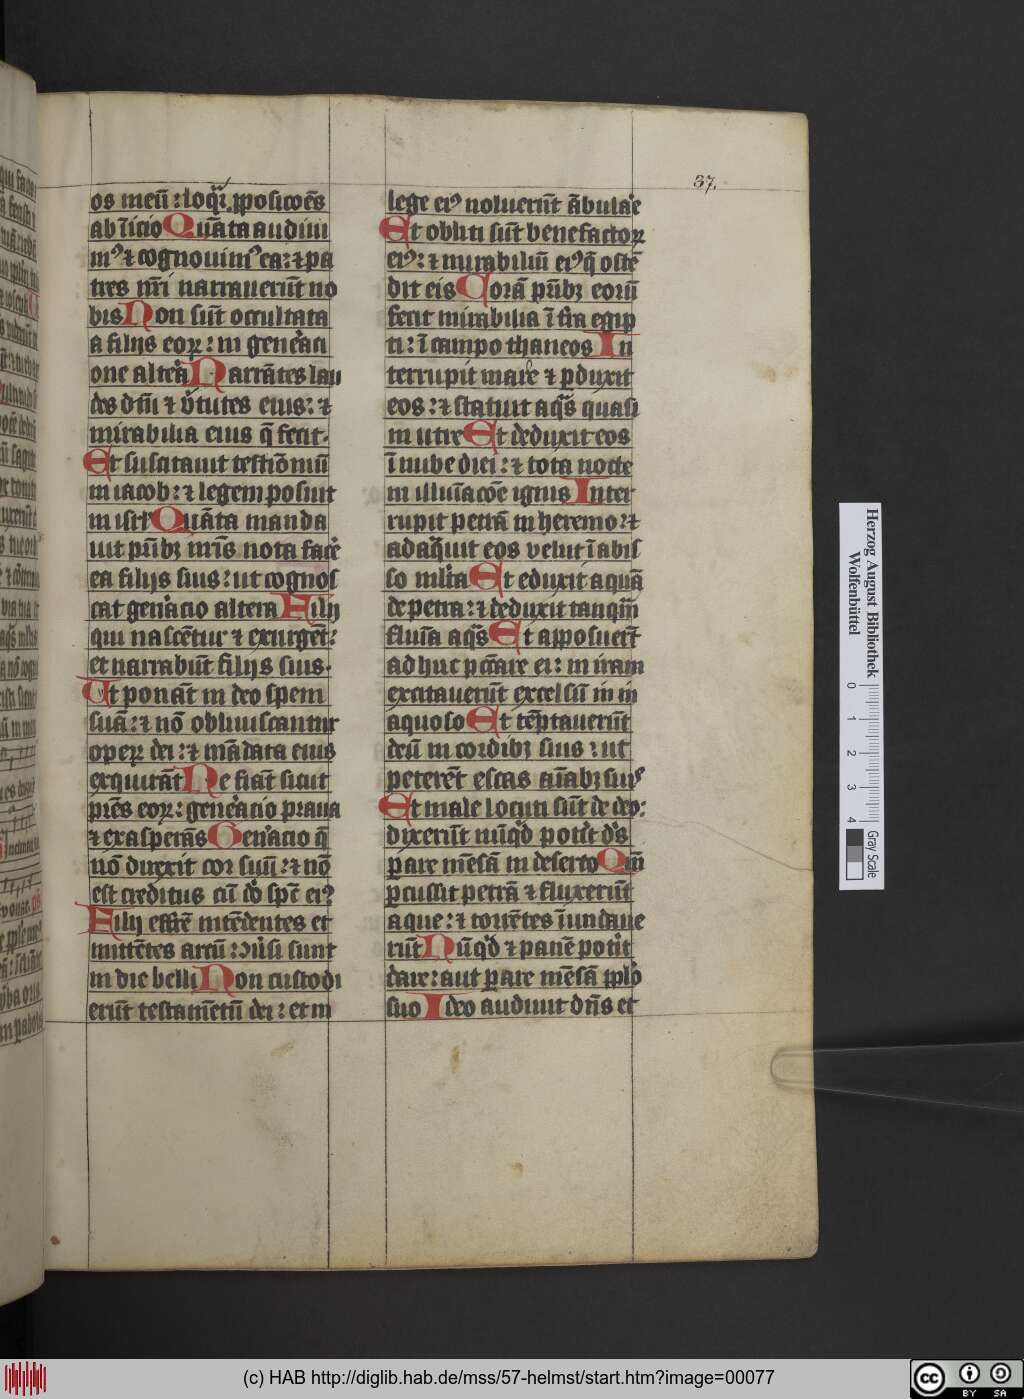 37.
os meū : loq̄r ꝓposicōēs
ab īicio Quāta audiui
mꝰ ⁊ cognouimꝰ ea : ⁊ pa
tres nr̄i narrauerūt no
bis Non sūt occultata
a filijs eoꝝ : in gen̄eaci
one alterā Narrātes lau
des dn̄i ⁊ v̓tutes eius : ⁊
mirabilia eius q̄ fecit ·
Et suscitauit testiōmū
in iacob : ⁊ legem posuit
in isrl̓ Quāta manda
uit pr̄ibꝫ nr̄is nota facē
ea filijs suis : ut cognos
cat gen̓acio altera Filij
qui nascētur ⁊ exurgēt :
et narrabūt filijs suis ·
Ut ponāt in deo spem
suā : ⁊ nō obliuiscantur
operꝝ dei : ⁊ mādata eius
exquirāt Ne fiāt sicut
pr̄es eoꝝ : gen̓eacio praua
⁊ exasperās Gen̓acio q̄
nō direxit cor suū : ⁊ nō
est creditus cū dō sp̄c eiꝰ
Filij effrē intēdentes et
mittētes arcū : ɔuersi sunt
in die belli Non custodi
erūt testamētū dei : et in
lege eiꝰ noluerūt ābulare
Et obliti sūt benefactoꝝ
eiꝰ : ⁊ mirabiliū eiꝰ q̄ ostē
dit eis Corā pr̄ibꝫ eorū
fecit mirabilia ī tr̄a egip
ti : ī campo thaneos In
terrupit mare ⁊ ꝑduxit
eos : ⁊ statuit aq̄s quasi
in utre Et deduxit eos
ī nube diei : ⁊ tota nocte
in illuīacōe ignis Inter
rupit petrā in heremo : ⁊
adaq̄uit eos velut ī abis
so ml̓ta Et eduxit aquā
de petra : ⁊ deduxit tanqm̄
fluīa aq̄s Et apposuer̄t
adhuc pccare ei : in iram
excitauerūt excelsū in in
aquoso Et tēptauerūt
deū in cordibꝫ suis : ut
peterēt escas aīabꝫ suis
Et male locuti sūt de deo :
dixerūt nūqd̓ poterit de̓s
ꝑare mēsā in deserto Qm̄
ꝑcussit petrā ⁊ fluxerūt
aque : ⁊ torrētes īundaue
rūt Nūqd̓ ⁊ panē poterit
dare : aut ꝑare mēsā pplo
suo Ideo audiuit dn̄s et
Herzog August Bibliothek
Wolfenbüttel
0 1 2 3 4
Gray Scale
(c) HAB http://diglib.hab.de/mss/57-helmst/start.htm?image=00077
cc BY SA